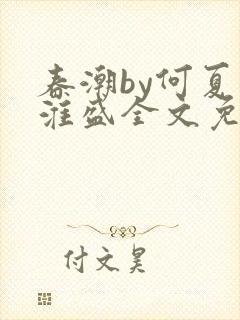 春潮by何夏
淮盛全文免
付文昊